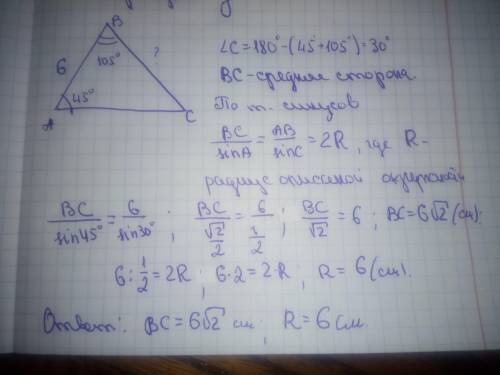 B
6
105°
?
45°
A
C
∠C=180°-(45°+105°)=30°
BC-средняя сторона.
По т. синусов
BC/sinA = AB/sinC = 2R, где R-
радиус описаной окружности
BC/sin45° = 6/sin30° ; BC/(√2/2) = 6/(1/2) ; BC/√2 = 6 ; BC=6√2 (см);
6:1/2=2R; 6·2=2·R; R=6(см).
Ответ: BC=6√2 см; R=6см.